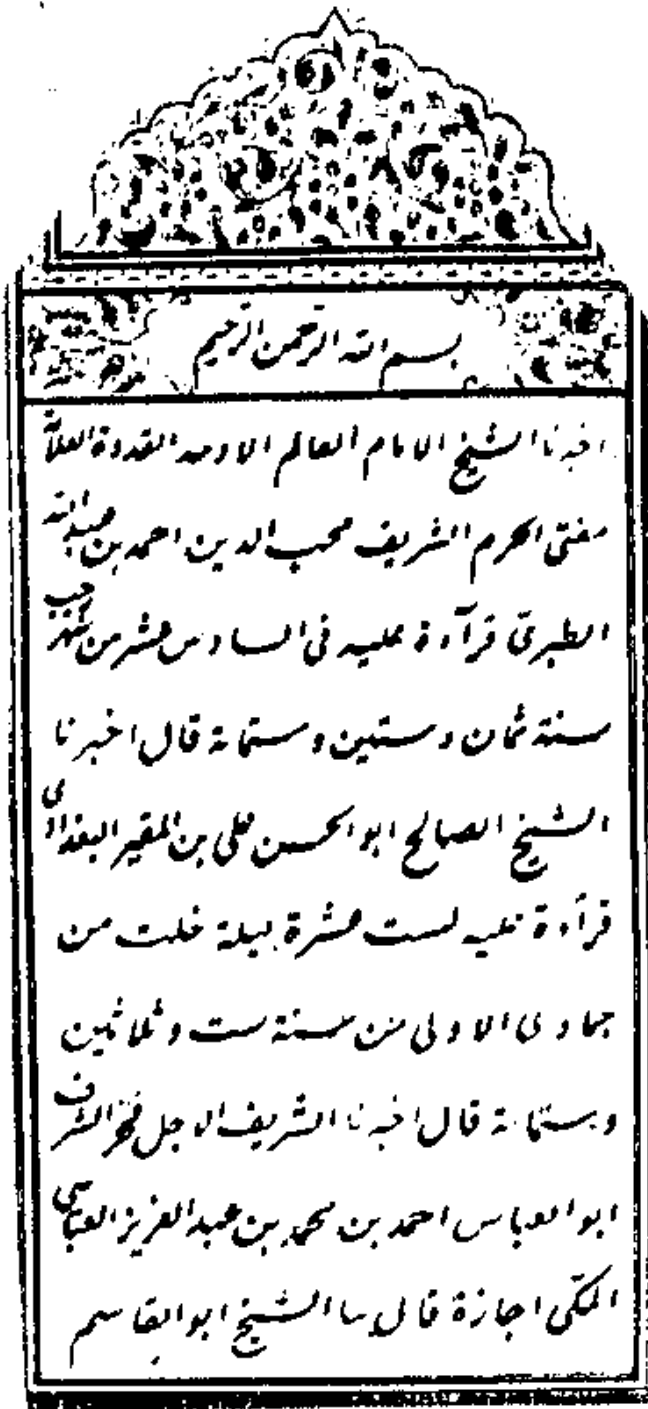 بسم الله الرحمن الرحيم
اخبرنا الشيخ الامام العالم الاوحد القدوة العلامة
مفتى الحرم الشريف محب الدين احمد بن عبد الله
الطبرىّ قرآءة عليه فى السادس عشر من شهر رجب
سنة ثمان وستين وستمائة قال اخبرنا
الشيخ الصالح ابو الحسن على بن المقير البغدادى
قرآءة عليه لست عشرة ليلة خلت من
جمادى الاولى من سنة ست وثلاثين
وستمائة قال اخبرنا الشريف الاجل فخر الشرف
ابو العباس احمد بن محمد بن عبد العزيز العباسى
المكّى اجازة قال الشيخ ابو القاسم